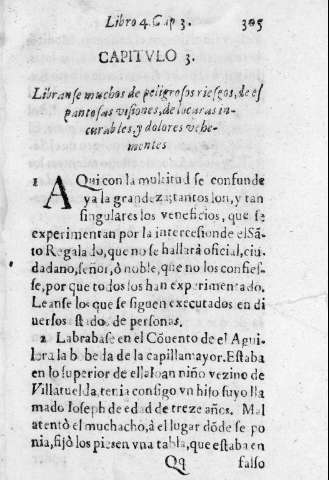 Libro 4. Cap 3. 305
CAPITVLO 3.
Libranse muchos de peligrosos riesgos, de es
pantosas visiones, de locuras in-
curables, y dolores vehe-
mentes
1 AQui con la multitud se confunde
ya la grandeza; tantos son, y tan
singulares los veneficios, que se
experimentan por la intercesion de el Sã-
to Regalado, que no se hallarà oficial, ciu-
dadano, señor, ò noble, que no los confies-
se, por que todos los han experimentado.
Leanse los que se siguen executados en di
uersos stados de personas.
2 Labrabase en el Cõuento de el Agui
lera la b beda de la capilla mayor. Estaba
en lo superior de ella vn niño vezino de
Villatuelda, tenia consigo vn hijo suyo lla
mado Ioseph de edad de treze años. Mal
atentò el muchacho, à el lugar dõde se po
nia, fijò los pies en vna tabla, que estaba en
Qq falso